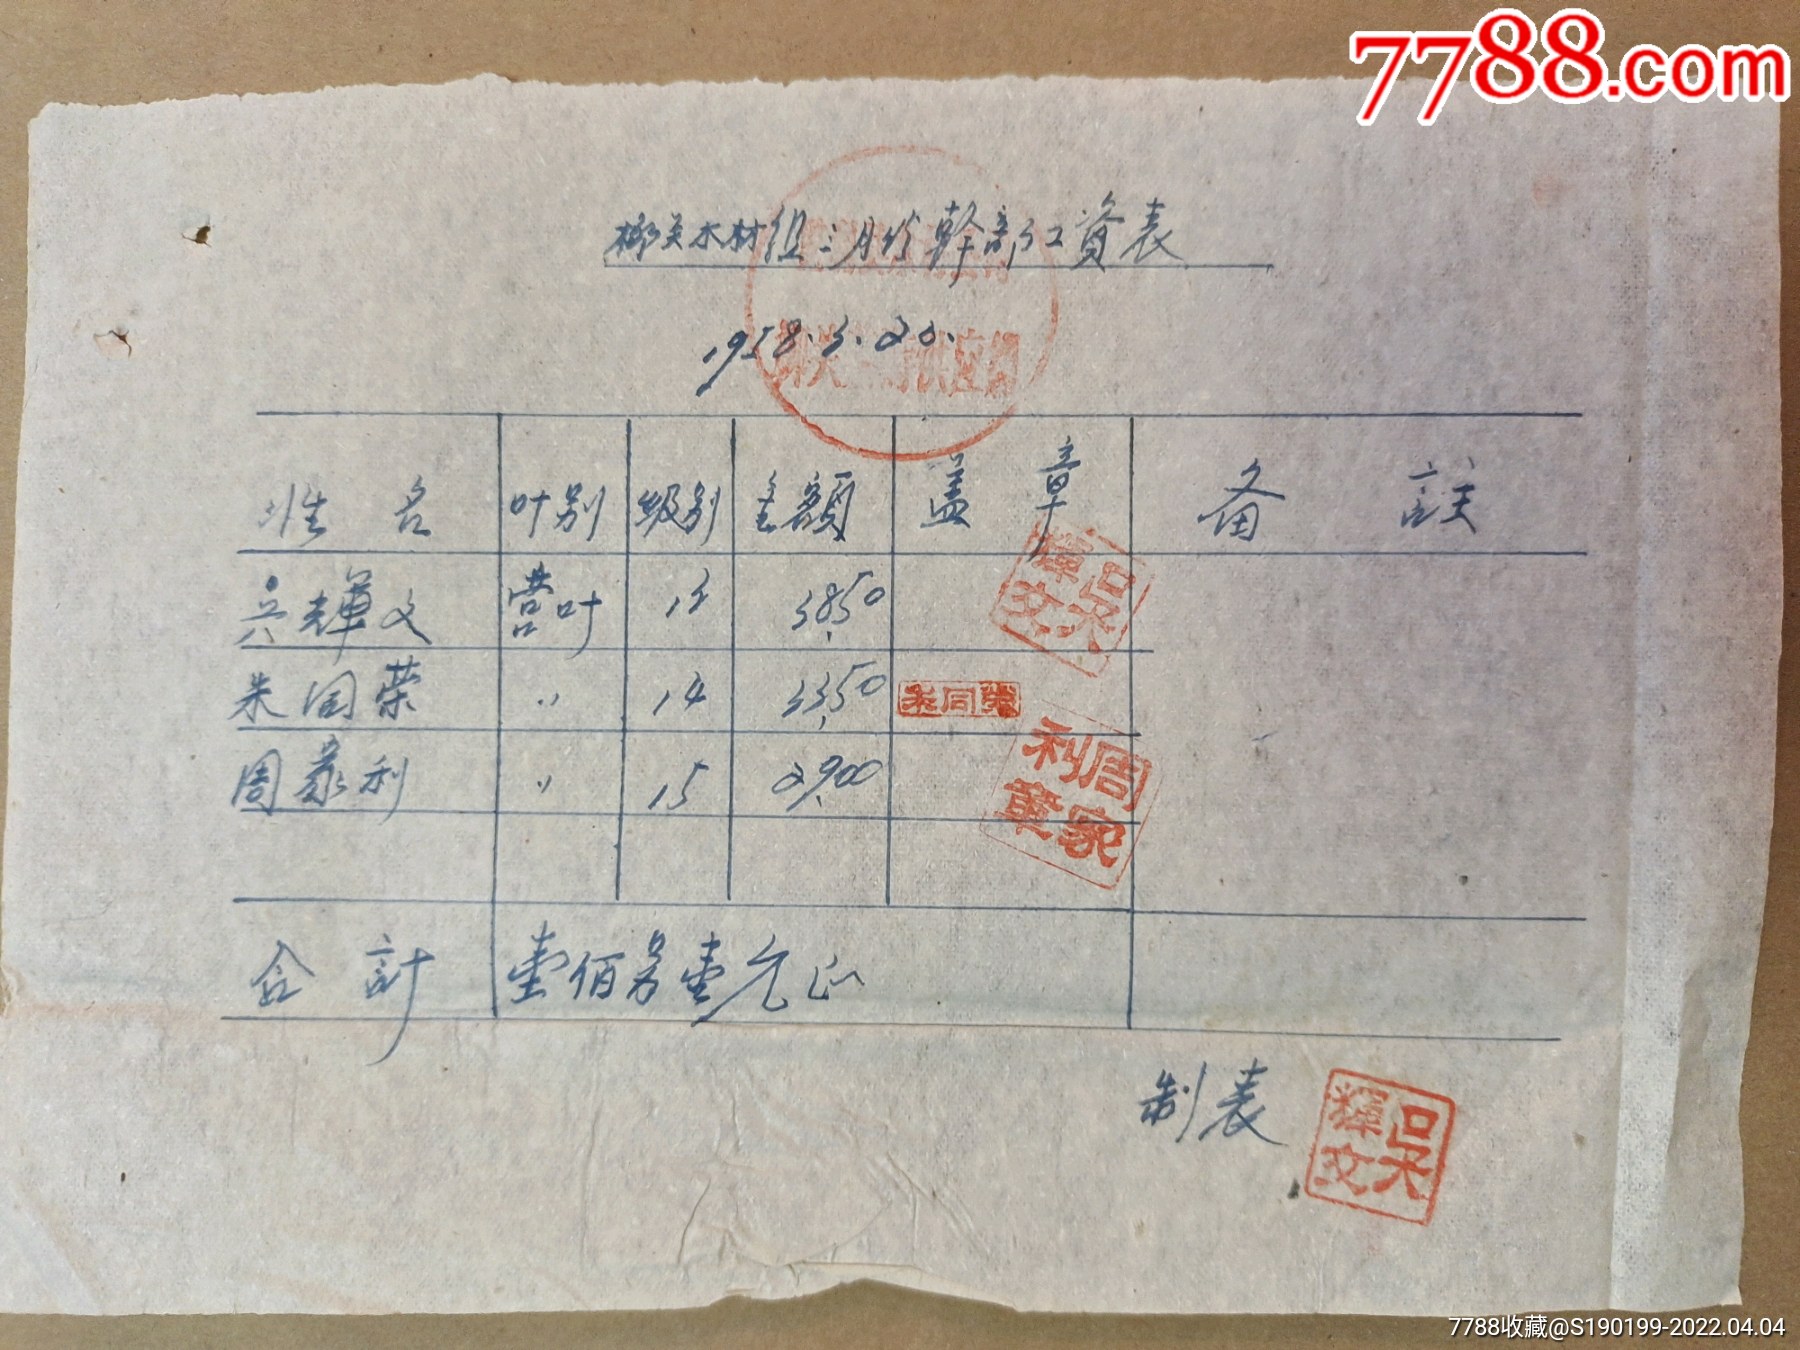 7788.com
榔关木材组三月份幹部工資表
1958.3.20.
姓名 叶别 级别 金额 盖章 备註
吴輝文 营叶 13 38.50 吴輝文
朱同荣 〃 14 33.50 朱同荣
周家利 〃 15 29.00 周家利章
合計 壹佰另壹元正
制表 吴輝文
7788收藏@S190199-2022.04.04